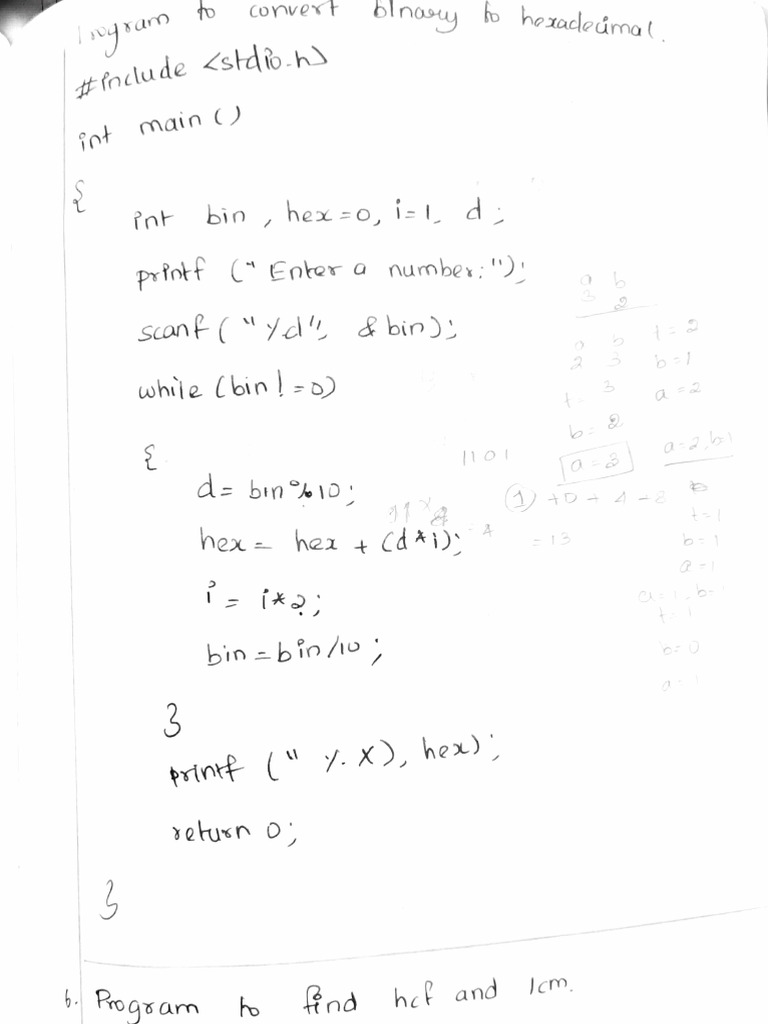 Program to convert binary to hexadecimal.
#include <stdio.h>
int main ()
{
int bin, hex=0, i=1, d;
printf ("Enter a number:");
scanf ("%d", &bin);
while (bin!=0)
{
d= bin%10;
hex= hex + (d*i);
i = i*2;
bin = bin/10;
}
printf (" %X), hex);
return 0;
}
6. Program to find hcf and lcm.
a b
3 2
a b
2 3
t= 3
b= 2
a=3
t=2
b=1
a=2
a=2, b=1
1101
1 +0+4-8
=13
t=1
b=1
a=1
b=0